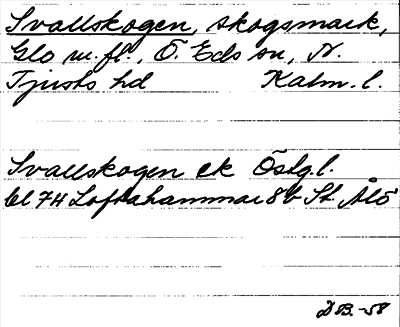 Svallskogen, skogsmark,
Glo m.fl., Ö. Eds sn, N.
Tjusts hd Kalm. l.
Svallskogen ek Östg.l.
bl 74 Loftahammar 8b St. Ålö
DB.-58